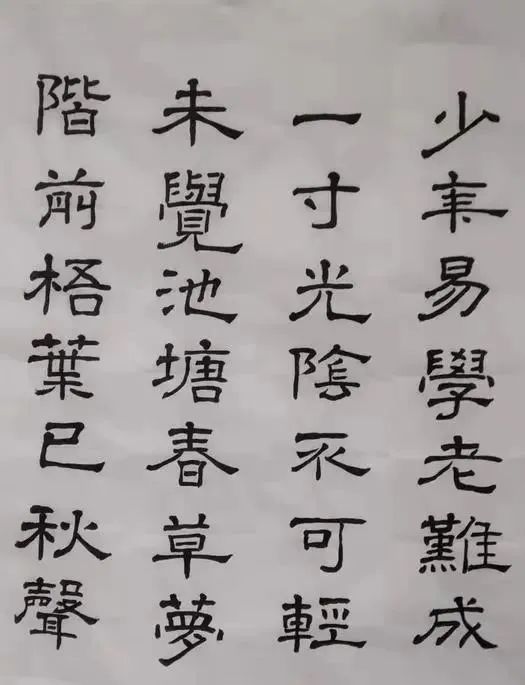 少年易學老難成
一寸光陰不可輕
未覺池塘春草夢
階前梧葉已秋聲